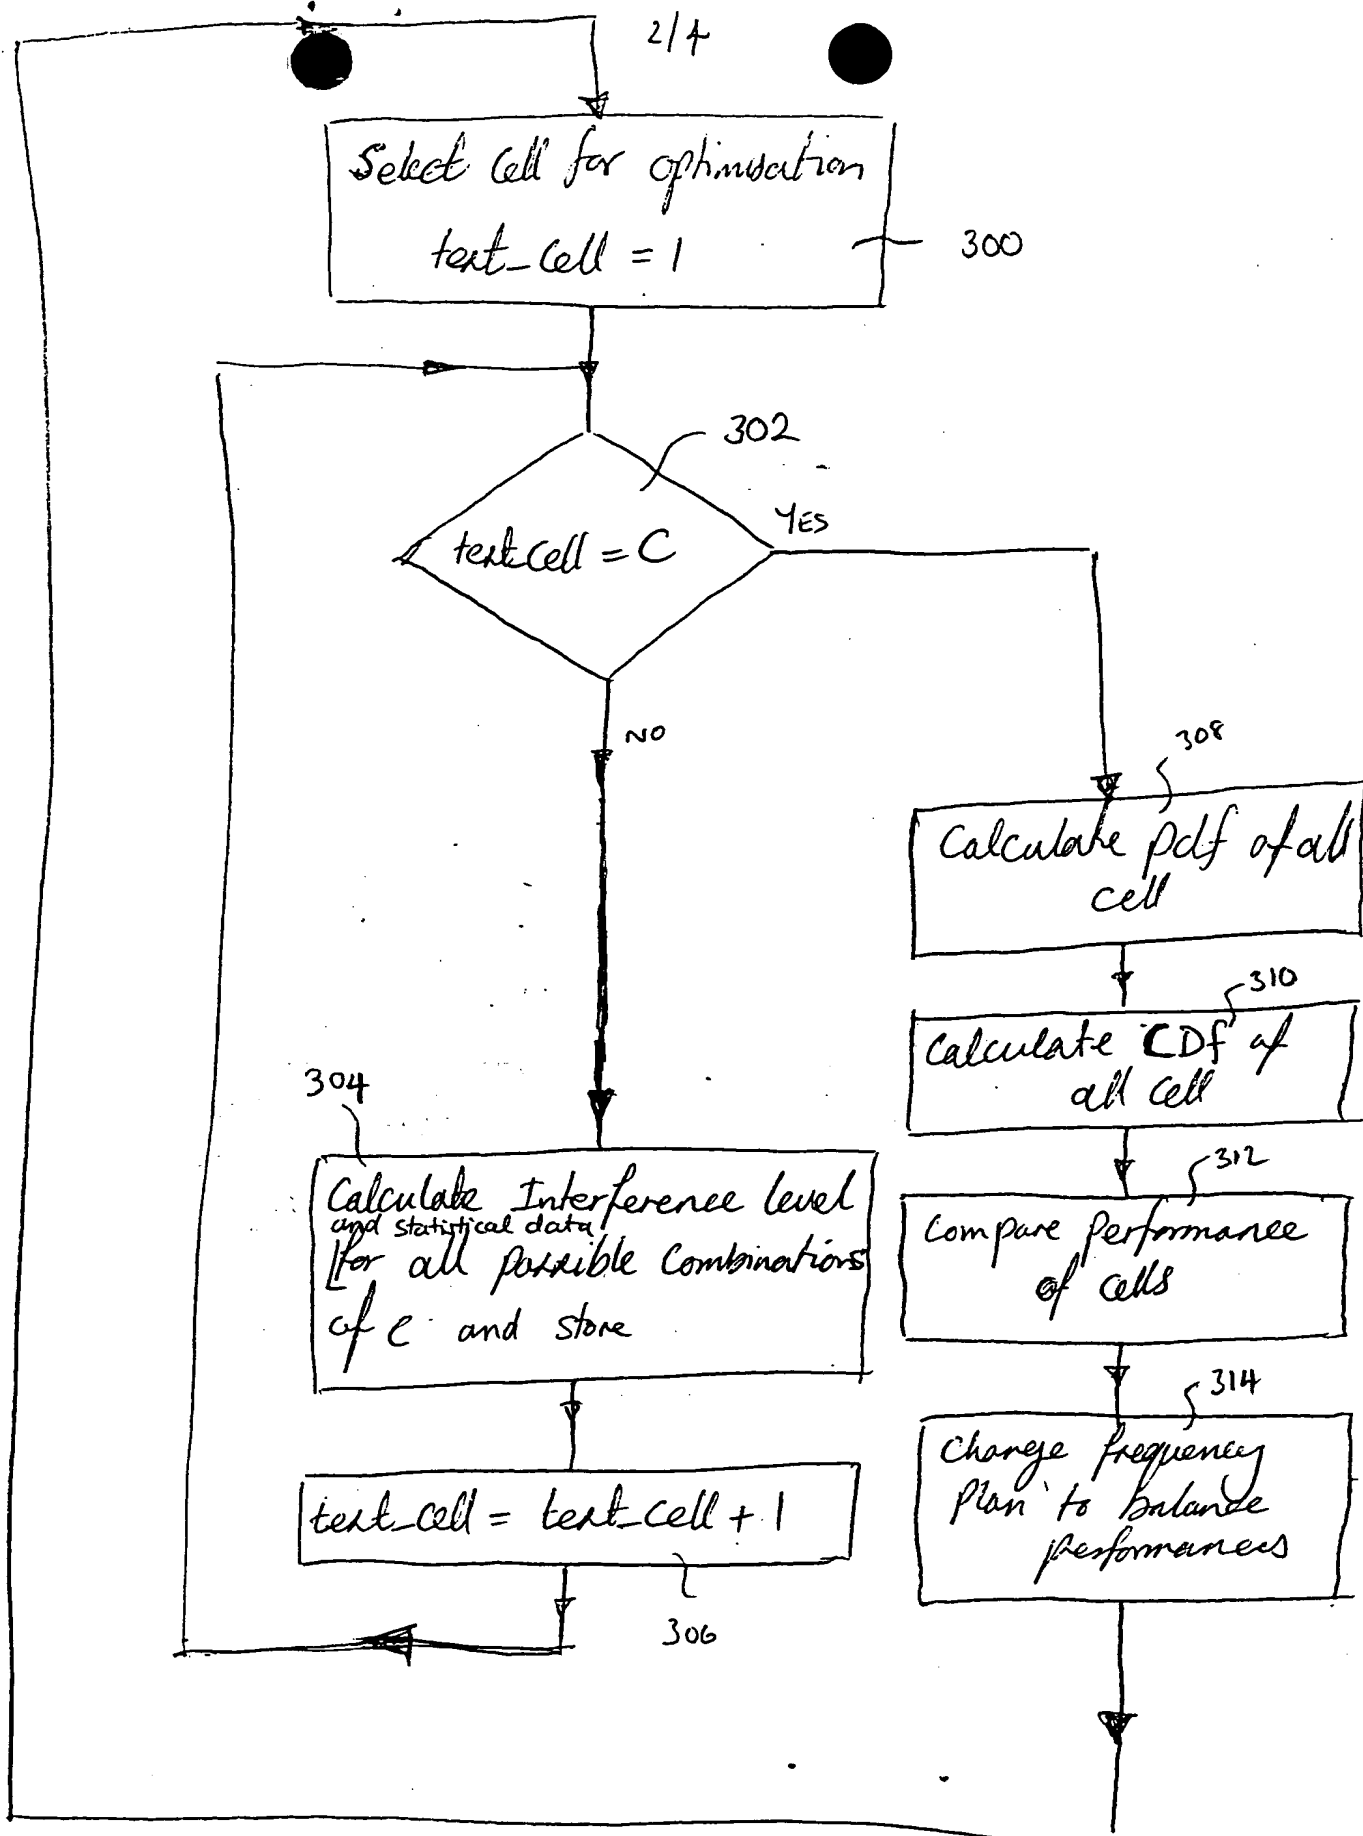 2/4
Select Cell for optimisation
test_cell = 1
300
302
test_cell = C
YES
NO
308
Calculate pdf of all
cell
310
Calculate CDf of
all cell
304
Calculate Interference level
and statistical data
for all possible Combinations
of C and store
312
Compare performance
of cells
314
Change frequency
Plan to balance
performances
test_cell = test_cell + 1
306